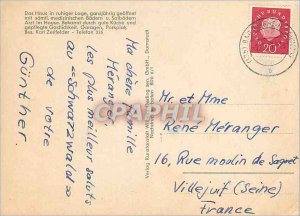 Das Haus in ruhiger Lage, ganzjährig geöffnet
mit sämtl. medizinischen Bädern u. Solbädern
Arzt im Hause. Bekannt durch gute Küche und
gepflegte Gastlichkeit. Garagen, Parkplatz
Bes. Karl Zeitfelder - Telefon 325
Ma chère famille
Méranger
les plus meilleur saluts
au "Schwarzwald"
de votre
Günther.
DEUTSCHE BUNDESPOST
20
CPARAMA.COM
Mr. et Mme
René Méranger
16, Rue moulin de Saquet
Villejuif (Seine)
France